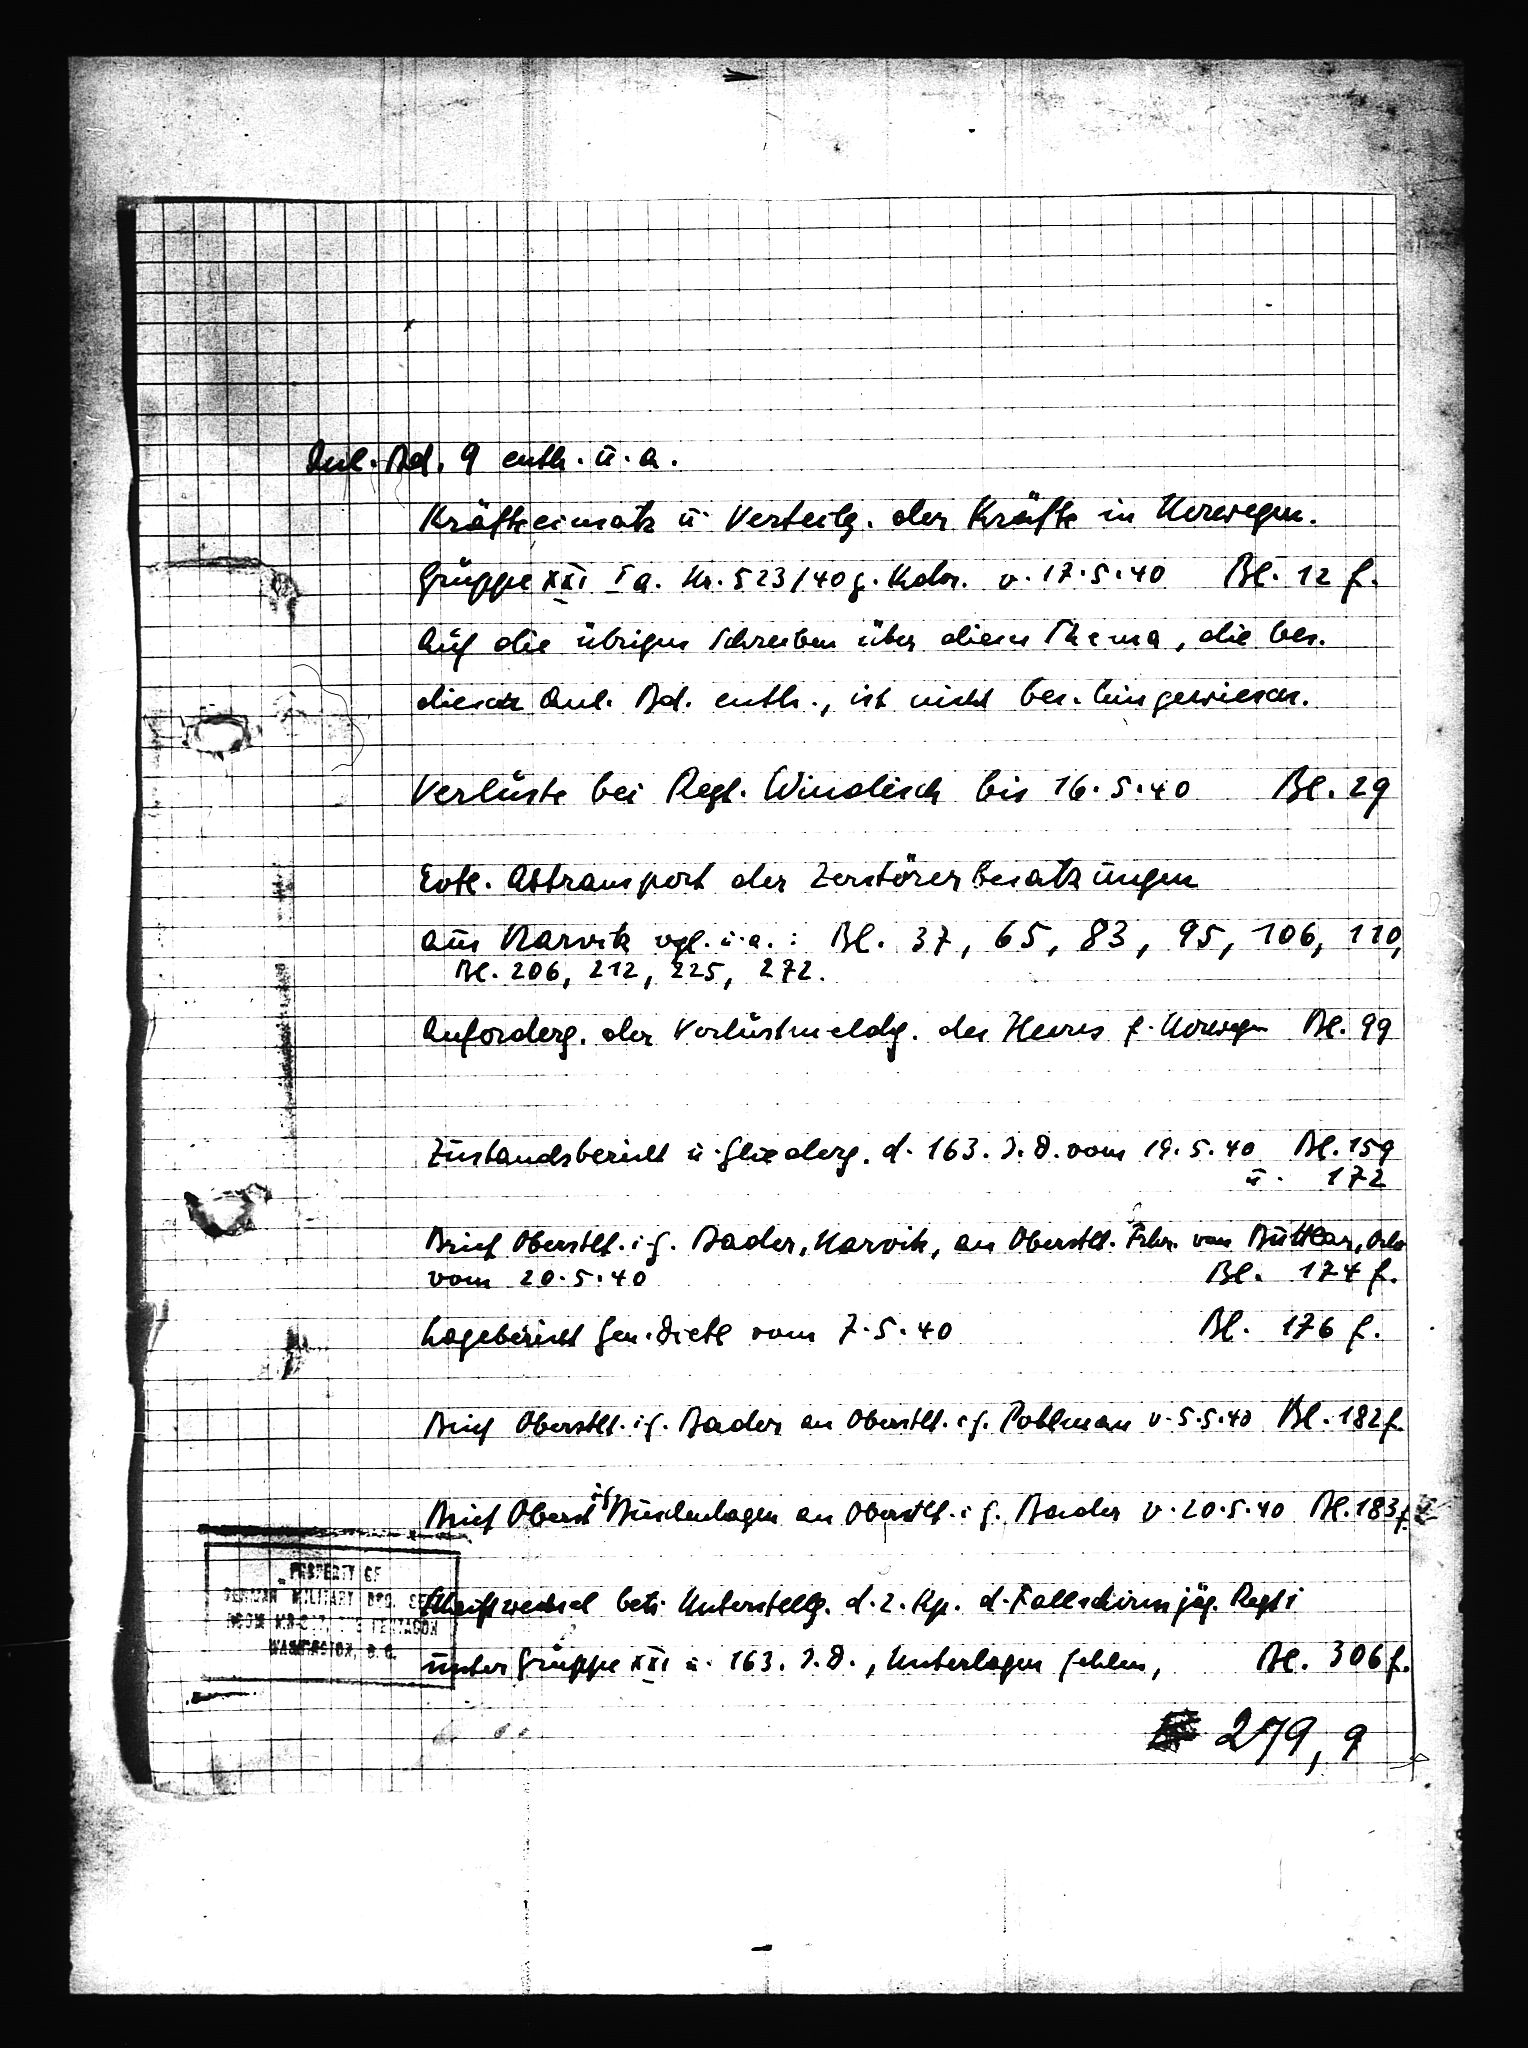 Anl. Bd. 9 enth. u. a.
Kräfteeinsatz u. Verteilg. der Kräfte in Norwegen.
Gruppe XXI Ia. Nr. 523/40 g. Kdos. v. 17.5.40 Bl. 12 f.
Auf die übrigen Schreiben über dieses Thema, die bes.
dieser Anl. Bd. enth., ist nicht bes. hingewiesen.
Verluste bei Regt. Windisch bis 16.5.40 Bl. 29
Evtl. Abtransport der Zerstörerbesatzungen
aus Narvik vgl. u. a.: Bl. 37, 65, 83, 95, 106, 110,
Bl. 206, 212, 225, 272.
Anforderg. der Verlustmeldg. des Heeres f. Norwegen Bl. 99
Zustandsbericht u. Gliederg. d. 163. I.D. vom 19.5.40 Bl. 159
u. 172
Brief Oberstlt. i.G. Bader, Narvik, an Oberstlt. Frhr. von Buttlar, Oslo
vom 20.5.40 Bl. 174 f.
Lagebericht Gen. Dietl vom 7.5.40 Bl. 176 f.
Brief Oberstlt. i.G. Bader an Oberstlt. i.G. Pohlman v. 5.5.40 Bl. 182 f.
Brief Oberst i.G. Buschenhagen an Oberstlt. i.G. Bader v. 20.5.40 Bl. 183 f.
PROPERTY OF
GERMAN MILITARY DOC. SEC
ROOM THE PENTAGON
WASHINGTON, D.C.
Schriftwechsel betr. Unterstellg. d. 2. Kp. d. Fallschirmjäg. Regt 1
unter Gruppe XXI u. 163. I.D., Unterlagen fehlen, Bl. 306 f.
279, 9